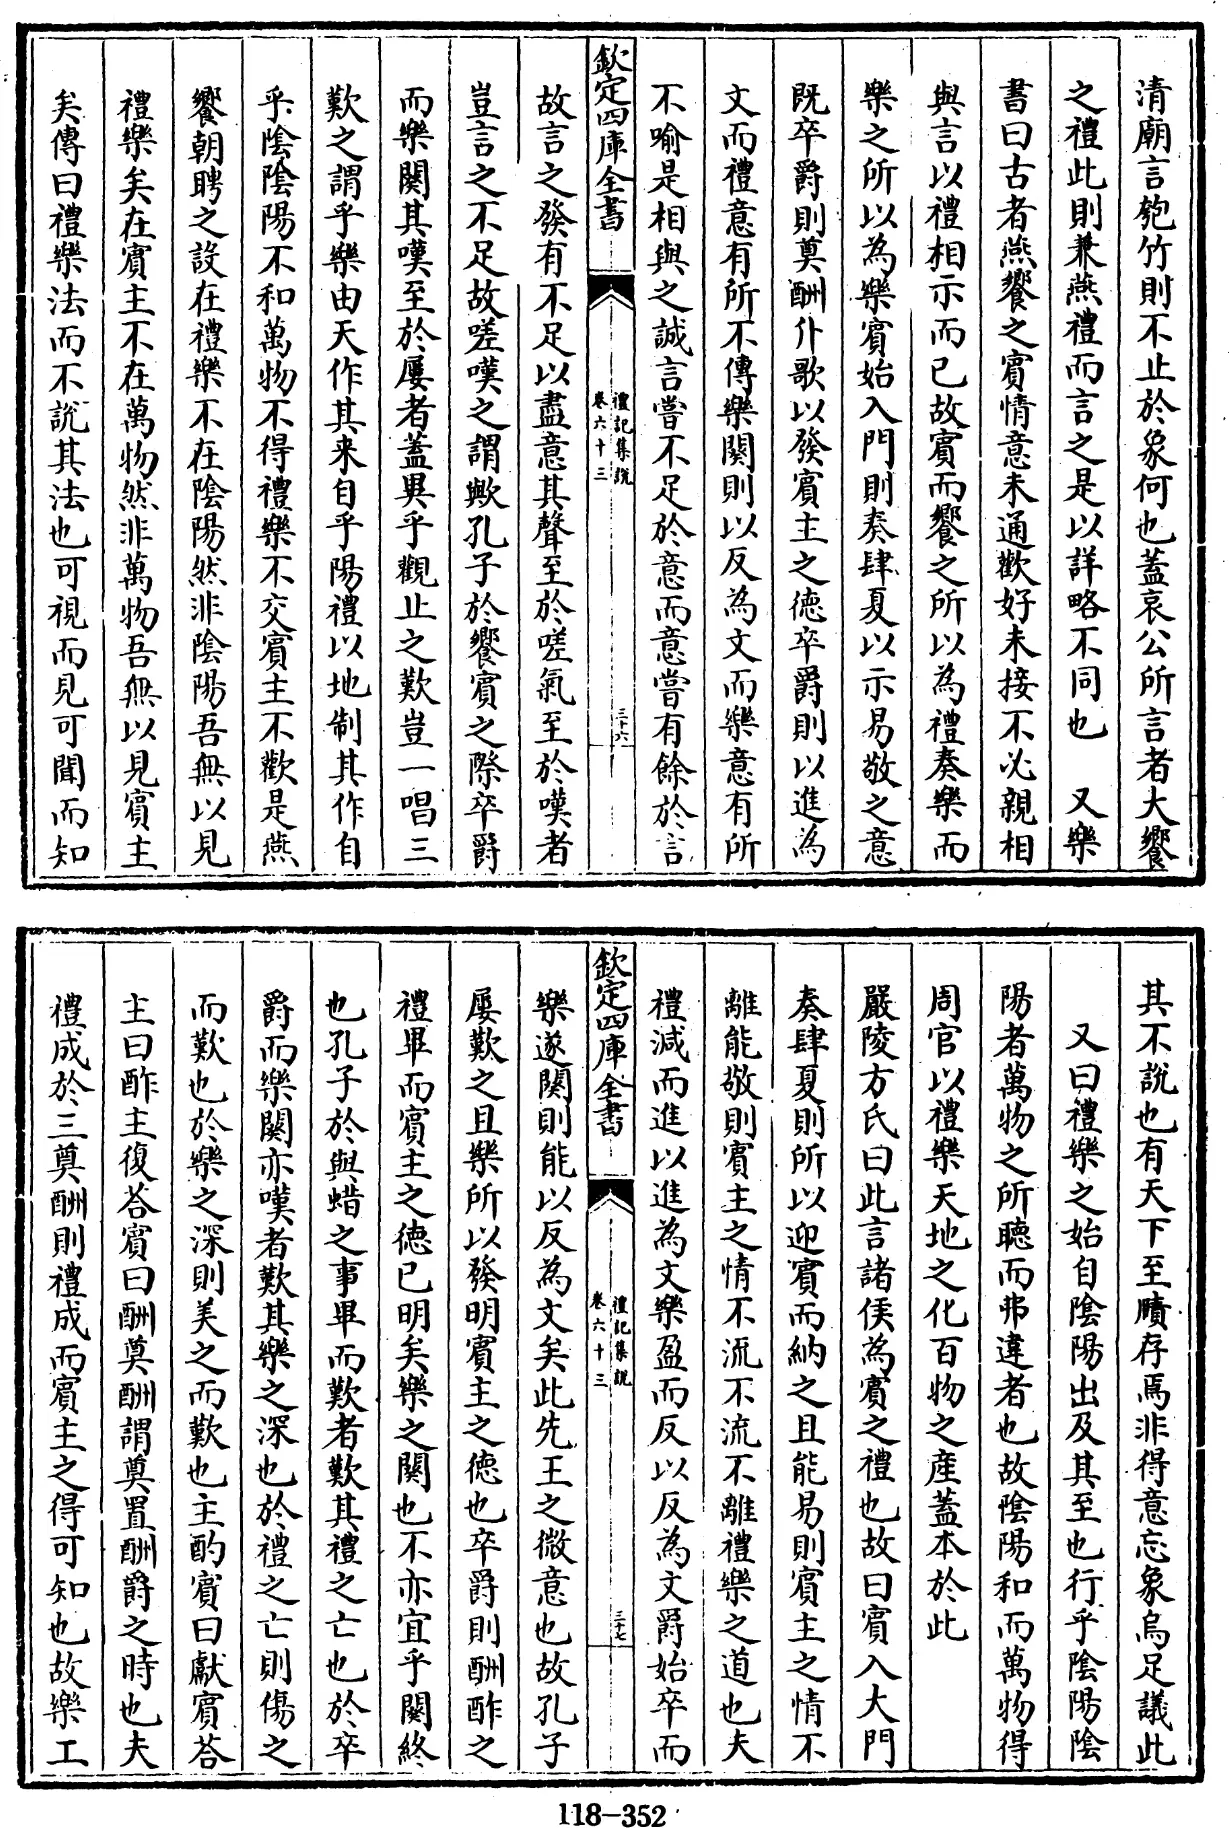 清廟言匏竹則不止於象何也蓋哀公所言者大饗
之禮此則兼燕禮而言之是以詳略不同也　又樂
書曰古者燕饗之賓情意未通歡好未接不必親相
與言以禮相示而已故賓而饗之所以為禮奏樂而
樂之所以為樂賓始入門則奏肆夏以示易敬之意
既卒爵則奠酬升歌以發賓主之德卒爵則以進為
文而禮意有所不傳樂闋則以反為文而樂意有所
不喻是相與之誠言嘗不足於意而意嘗有餘於言
欽定四庫全書
禮記集說
卷六十三
三十六
故言之發有不足以盡意其聲至於嗟氣至於嘆者
豈言之不足故嗟嘆之謂歟孔子於饗賓之際卒爵
而樂闋其嘆至於屢者蓋異乎觀止之歎豈一唱三
歎之謂乎樂由天作其来自乎陽禮以地制其作自
乎陰陰陽不和萬物不得禮樂不交賓主不歡是燕
饗朝聘之設在禮樂不在陰陽然非陰陽吾無以見
禮樂矣在賓主不在萬物然非萬物吾無以見賓主
矣傳曰禮樂法而不說其法也可視而見可聞而知
其不說也有天下至賾存焉非得意忘象烏足議此
又曰禮樂之始自陰陽出及其至也行乎陰陽陰
陽者萬物之所聽而弗違者也故陰陽和而萬物得
周官以禮樂天地之化百物之產蓋本於此
嚴陵方氏曰此言諸侯為賓之禮也故曰賓入大門
奏肆夏則所以迎賓而納之且能易則賓主之情不
離能敬則賓主之情不流不流不離禮樂之道也夫
禮減而進以進為文樂盈而反以反為文爵始卒而
欽定四庫全書
禮記集說
卷六十三
三十七
樂遂闋則能以反為文矣此先王之微意也故孔子
屢歎之且樂所以發明賓主之德也卒爵則酬酢之
禮畢而賓主之德已明矣樂之闋也不亦宜乎闋終
也孔子於與蜡之事畢而歎者歎其禮之亡也於卒
爵而樂闋亦嘆者歎其樂之深也於禮之亡則傷之
而歎也於樂之深則美之而歎也主酌賓曰獻賓荅
主曰酢主復荅賓曰酬奠酬謂奠置酬爵之時也夫
禮成於三奠酬則禮成而賓主之得可知也故樂工
118-352